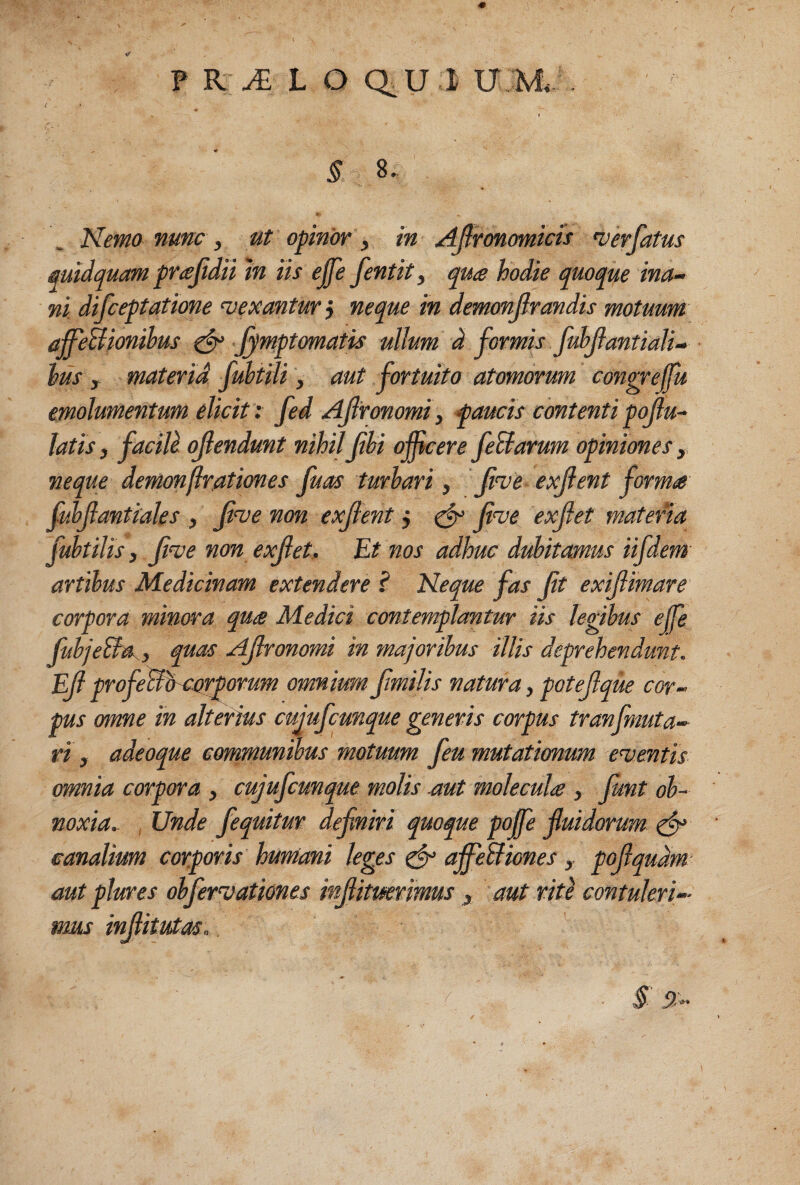 PRÆLOQUIUM.
§ 8.
Nemo nunc, ut opinor, in Aſtronomicis verſatus
quidquam præſidii in iis eſſe ſentit, quæ hodie quoque ina-
ni diſceptatione vexantur; neque in demonſtrandis motuum
affectionibus & ſymptomatis ullum à formis ſubſtantiali-
bus, materiâ ſubtili, aut fortuito atomorum congreſſu
emolumentum elicit: ſed Aſtronomi, paucis contenti poſtu-
latis, facilè oſtendunt nihil ſibi officere ſectarum opiniones,
neque demonſtrationes ſuas turbari, ſive exſtent formæ
ſubſtantiales, ſive non exſtent; & ſive exſtet materia
ſubtilis, ſive non exſtet. Et nos adhuc dubitamus iiſdem
artibus Medicinam extendere? Neque fas ſit exiſtimare
corpora minora quæ Medici contemplantur iis legibus eſſe
ſubjecta, quas Aſtronomi in majoribus illis deprehendunt.
Eſt profectò corporum omnium ſimilis natura, poteſtque cor-
pus omne in alterius cujuſcunque generis corpus tranſmuta-
ri, adeoque communibus motuum ſeu mutationum eventis
omnia corpora, cujuſcunque molis aut moleculæ, ſunt ob-
noxia. Unde ſequitur definiri quoque poſſe fluidorum &
canalium corporis humani leges & affectiones, poſtquàm
aut plures obſervationes inſtituerimus, aut ritè contuleri-
mus inſtitutas.
§ 9.